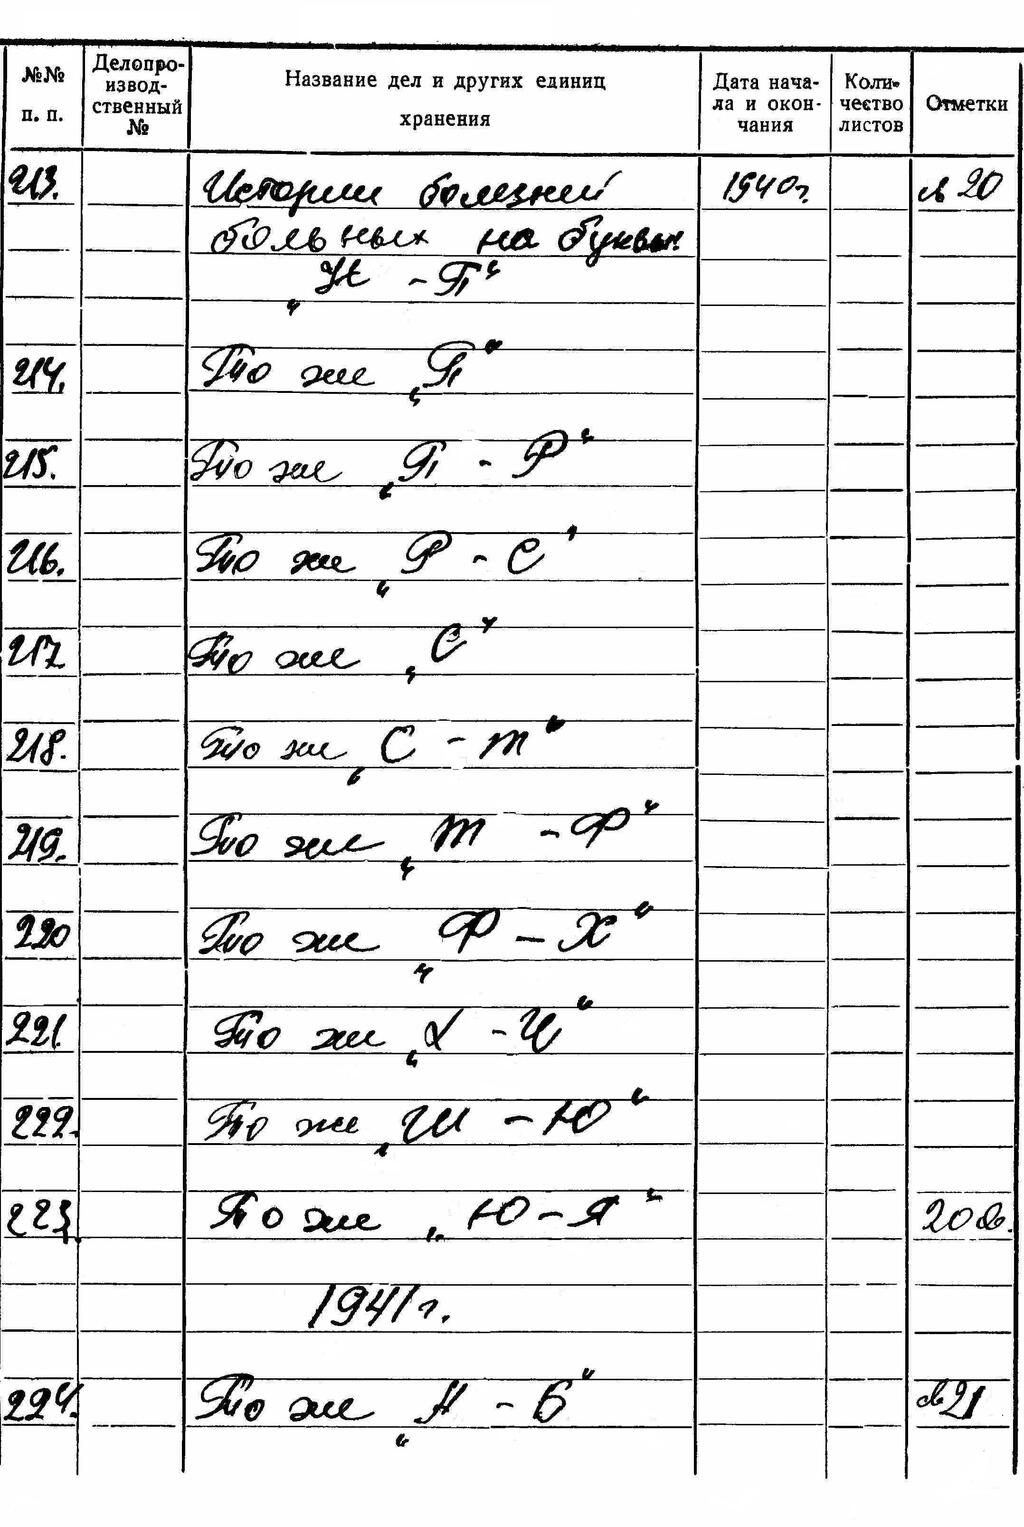 №№ п. п. Делопроизводственный № Название дел и других единиц хранения Дата начала и окончания Количество листов Отметки
213. Истории болезней 1940г. св 20
больных на буквы:
„Н - П“
214. То же „П“
215. То же „П - Р“
216. То же „Р - С“
217 То же „С“
218. То же „С - Т“
219. То же „Т - Ф“
220 То же „Ф - Х“
221. То же „Х - Ч“
222. То же „Ш - Ю“
223 То же „Ю - Я“ 20 св.
1941 г.
224. То же „А - Б“ св 21